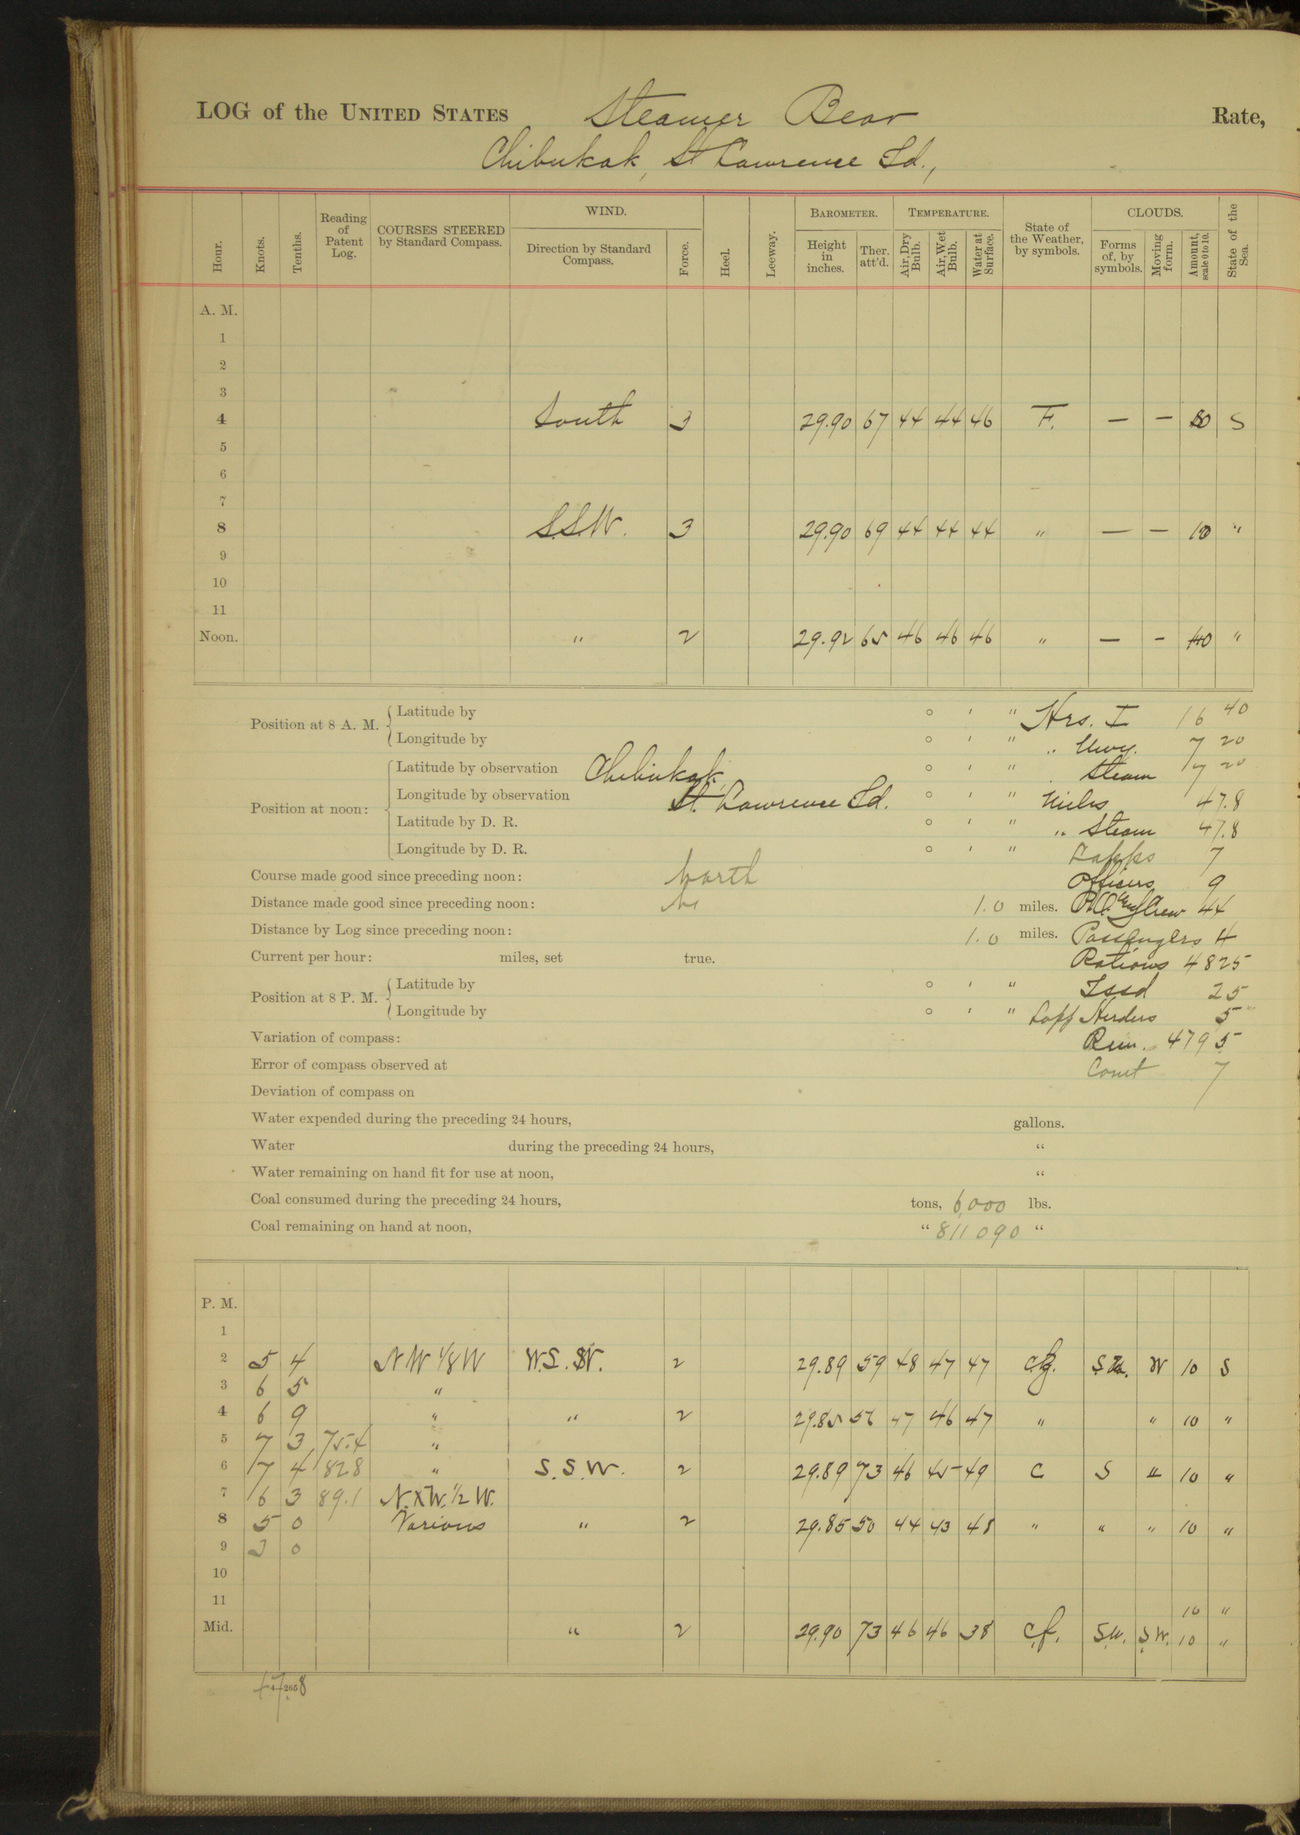 LOG of the UNITED STATES Steamer Bear Rate,
Chibukak, St Lawrence Id.,
Hour. Knots. Tenths. Reading of Patent Log. COURSES STEERED by Standard Compass. WIND. Direction by Standard Compass. Force. Heel. Leeway. BAROMETER. Height in inches. Ther. att'd. TEMPERATURE. Air, Dry Bulb. Air, Wet Bulb. Water at Surface. State of the Weather, by symbols. CLOUDS. Forms of, by symbols. Moving form. Amount, scale 0 to 10. State of the Sea.
A. M.
1
2
3
4 South 3 29.90 67 44 44 46 F. — — 10 S
5
6
7
8 S.S.W. 3 29.90 69 44 44 44 " — — 10 "
9
10
11
Noon. " 2 29.92 65 46 46 46 " — - 10 "
Position at 8 A. M. Latitude by ° ' " Hrs. I 16 40
Longitude by ° ' " " Uwy. 7 20
Position at noon: Latitude by observation Chibukak, ° ' " Steam 7 20
Longitude by observation St. Lawrence Id. ° ' " Miles 47.8
Latitude by D. R. ° ' " " Steam 47.8
Longitude by D. R. ° ' " Lapps 7
Course made good since preceding noon: North Officers 9
Distance made good since preceding noon: 1.0 miles. Crew 44
Distance by Log since preceding noon: 1.0 miles. Passengers 4
Current per hour: miles, set true. Rations 4825
Position at 8 P. M. Latitude by ° ' " Issd 25
Longitude by ° ' " Lapp Herders 5
Variation of compass: Rem. 4795
Error of compass observed at 7
Deviation of compass on
Water expended during the preceding 24 hours, gallons.
Water during the preceding 24 hours, "
Water remaining on hand fit for use at noon, "
Coal consumed during the preceding 24 hours, tons, 6,000 lbs.
Coal remaining on hand at noon, " 811090 "
P. M.
1
2 5 4 NW 1/8 W W.S.W. 2 29.89 59 48 47 47 W 10 S
3 6 5 "
4 6 9 " " 2 29.85 56 47 46 47 " " 10 "
5 7 3 75.4 "
6 7 4 828 " S.S.W. 2 29.89 73 46 45 49 C S " 10 "
7 6 3 89.1 N.XW.1/2 W.
8 5 0 Various " 2 29.85 50 44 43 48 " " " 10 "
9 3 0
10
11 10 "
Mid. " 2 29.90 73 46 46 38 c.f. S.W. 10 "
47 8